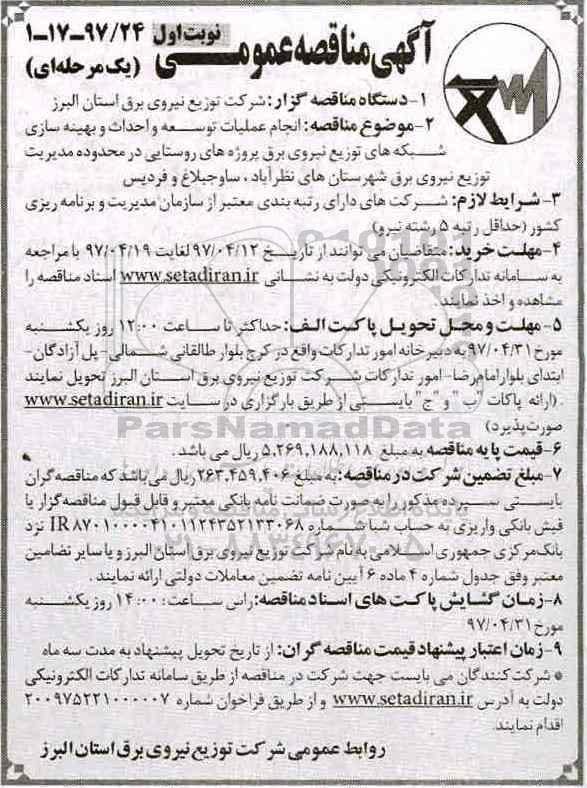 آگهی مناقصه عمومی نوبت اول ۹۷/۲۴-۱۷-۱
(یک مرحله‌ای)
۱-دستگاه مناقصه گزار: شرکت توزیع نیروی برق استان البرز
۲-موضوع مناقصه: انجام عملیات توسعه و احداث و بهینه سازی
شبکه های توزیع نیروی برق پروژه های روستایی در محدوده مدیریت
توزیع نیروی برق شهرستان های نظرآباد، ساوجبلاغ و فردیس
۳-شرایط لازم: شرکت های دارای رتبه بندی معتبر از سازمان مدیریت و برنامه ریزی
کشور (حداقل رتبه ۵ رشته نیرو)
۴-مهلت خرید: متقاضیان می توانند از تاریخ ۹۷/۰۴/۱۲ لغایت ۹۷/۰۴/۱۹ با مراجعه
به سامانه تدارکات الکترونیکی دولت به نشانی www.setadiran.ir اسناد مناقصه را
مشاهده و اخذ نمایند.
۵-مهلت و محل تحویل پاکت الف: حداکثر تا ساعت ۱۲:۰۰ روز یکشنبه
مورخ ۹۷/۰۴/۳۱ به دبیرخانه امور تدارکات واقع در کرج بلوار طالقانی شمالی-پل آزادگان-
ابتدای بلوار امام رضا-امور تدارکات شرکت توزیع نیروی برق استان البرز تحویل نمایند
. (ارائه پاکات "ب" و "ج" بایستی از طریق بارگزاری در سایت www.setadiran.ir
صورت پذیرد)
ParsNamadData
۶-قیمت پایه مناقصه به مبلغ ۵.۲۶۹.۱۸۸.۱۱۸ ریال می باشد.
۷-مبلغ تضمین شرکت در مناقصه: به مبلغ ۲۶۳.۴۵۹.۴۰۶ ریال می باشد که مناقصه گران
بایستی سپرده مذکور را به صورت ضمانت نامه بانکی معتبر و قابل قبول مناقصه گزار یا
فیش بانکی واریزی به حساب شبا شماره IR ۸۷۰۱۰۰۰۰۴۱۰۱۱۲۴۳۵۲۱۳۳۰۶۸ نزد
بانک مرکزی جمهوری اسلامی به نام شرکت توزیع نیروی برق استان البرز و یا سایر تضامین
معتبر وفق جدول شماره ۴ ماده ۶ آیین نامه تضمین معاملات دولتی ارائه نمایند.
۸-زمان گشایش پاکت های اسناد مناقصه: راس ساعت: ۱۴:۰۰ روز یکشنبه
مورخ ۹۷/۰۴/۳۱
۹-زمان اعتبار پیشنهاد قیمت مناقصه گران: از تاریخ تحویل پیشنهاد به مدت سه ماه
* شرکت کنندگان می بایست جهت شرکت در مناقصه از طریق سامانه تدارکات الکترونیکی
دولت به آدرس www.setadiran.ir و از طریق فراخوان شماره ۲۰۰۹۷۵۲۲۱۰۰۰۰۰۷
اقدام نمایند.
روابط عمومی شرکت توزیع نیروی برق استان البرز